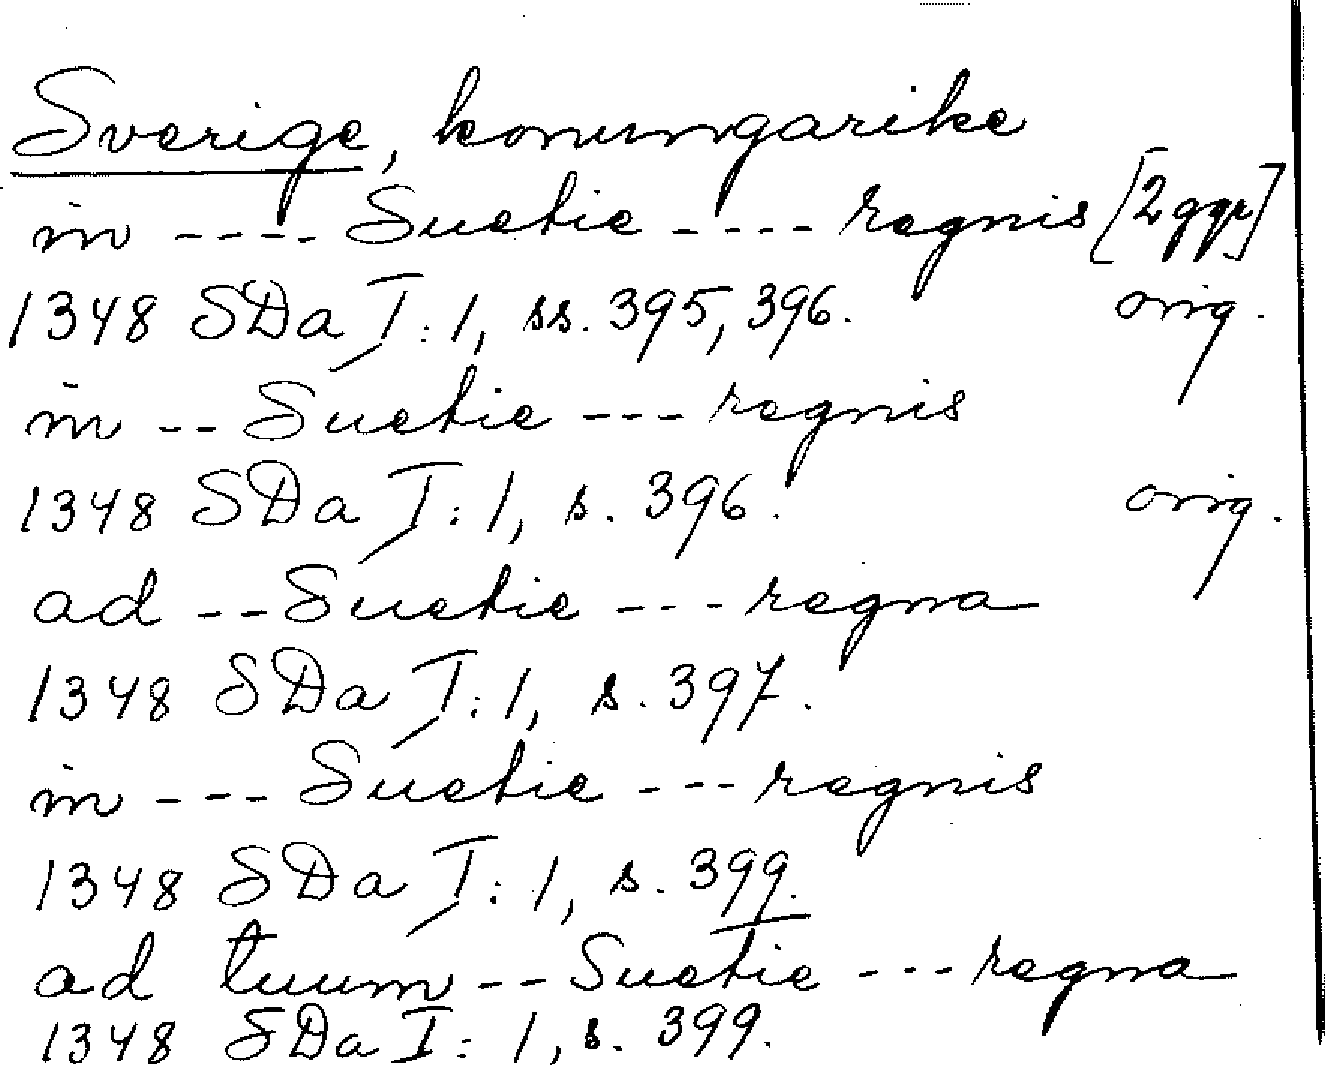 Sverige, konungarike
in ---- Suetie ---- regnis [2 ggr]
1348 SDa I: 1, ss. 395, 396. orig.
in -- Suetie --- regnis
1348 SDa I: 1, s. 396. orig.
ad -- Suetie --- regna
1348 SDa I: 1, s. 397.
in --- Suetie --- regnis
1348 SDa I: 1, s. 399.
ad tuum -- Suetie --- regna
1348 SDa I: 1, s. 399.